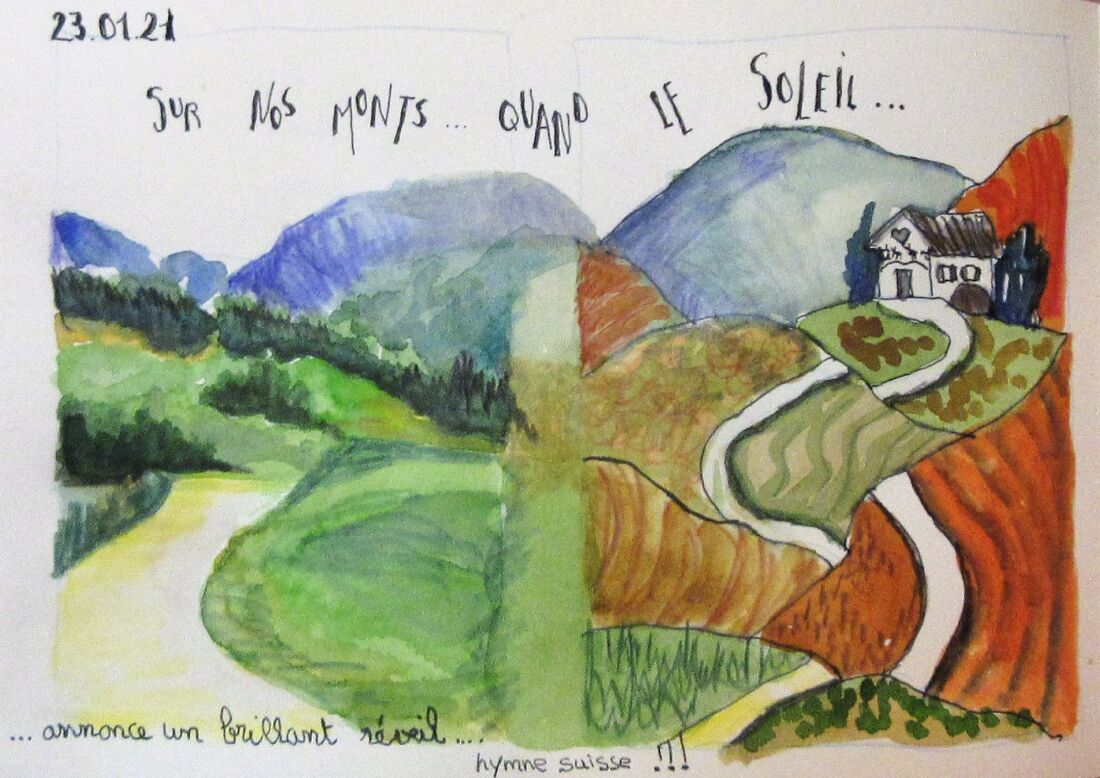 23.01.21
SUR NOS MONTS... QUAND LE SOLEIL...
... annonce un brillant réveil....
hymne suisse !!!